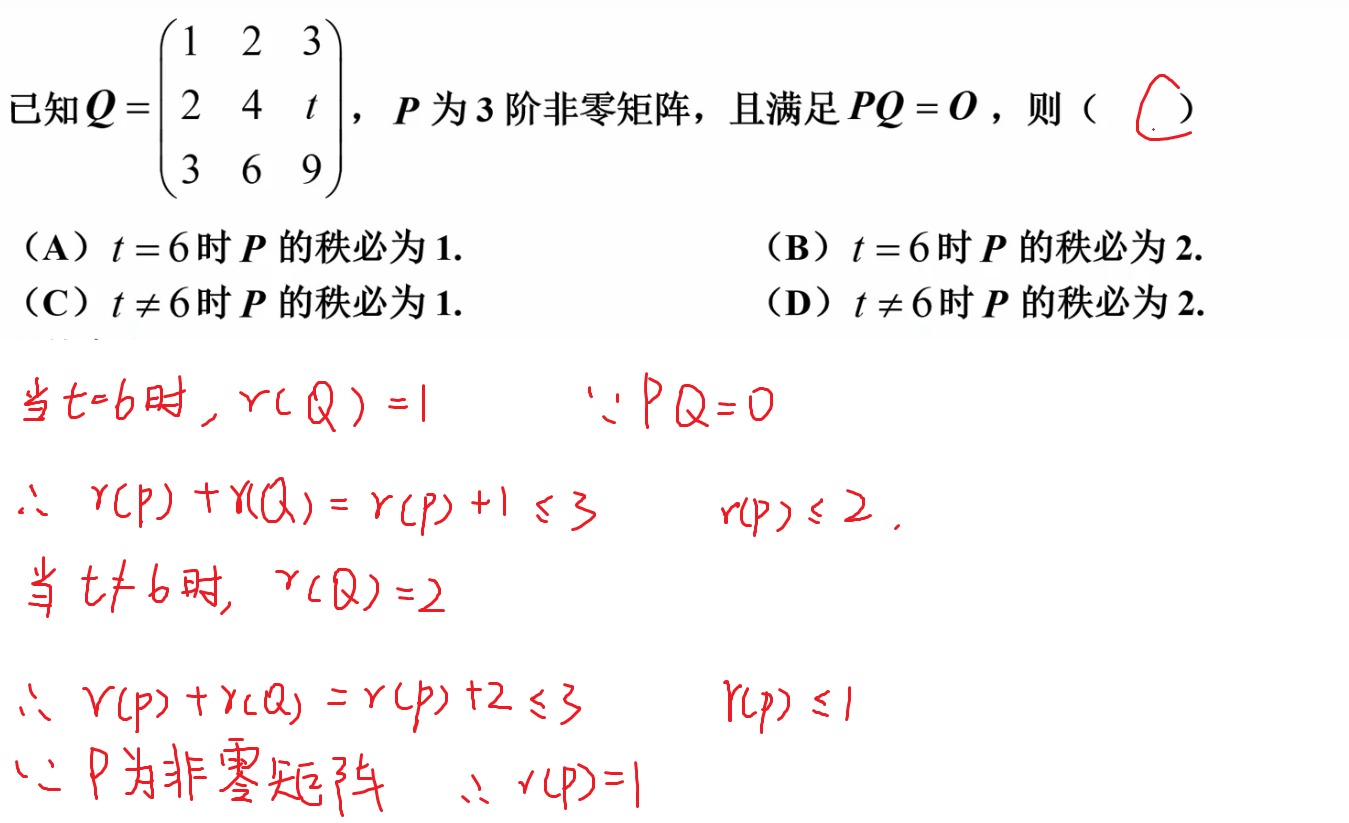 已知 Q = ( 1 2 3
2 4 t
3 6 9 ) , P 为 3 阶非零矩阵，且满足 PQ = O ，则（ C ）
（A）t = 6 时 P 的秩必为 1. （B）t = 6 时 P 的秩必为 2.
（C）t ≠ 6 时 P 的秩必为 1. （D）t ≠ 6 时 P 的秩必为 2.
当 t=6时, r(Q)=1 ∵PQ=0
∴ r(p)+r(Q)=r(p)+1≤3 r(p)≤2.
当 t≠6时, r(Q)=2
∴ r(p)+r(Q)=r(p)+2≤3 r(p)≤1
∵P为非零矩阵 ∴r(p)=1